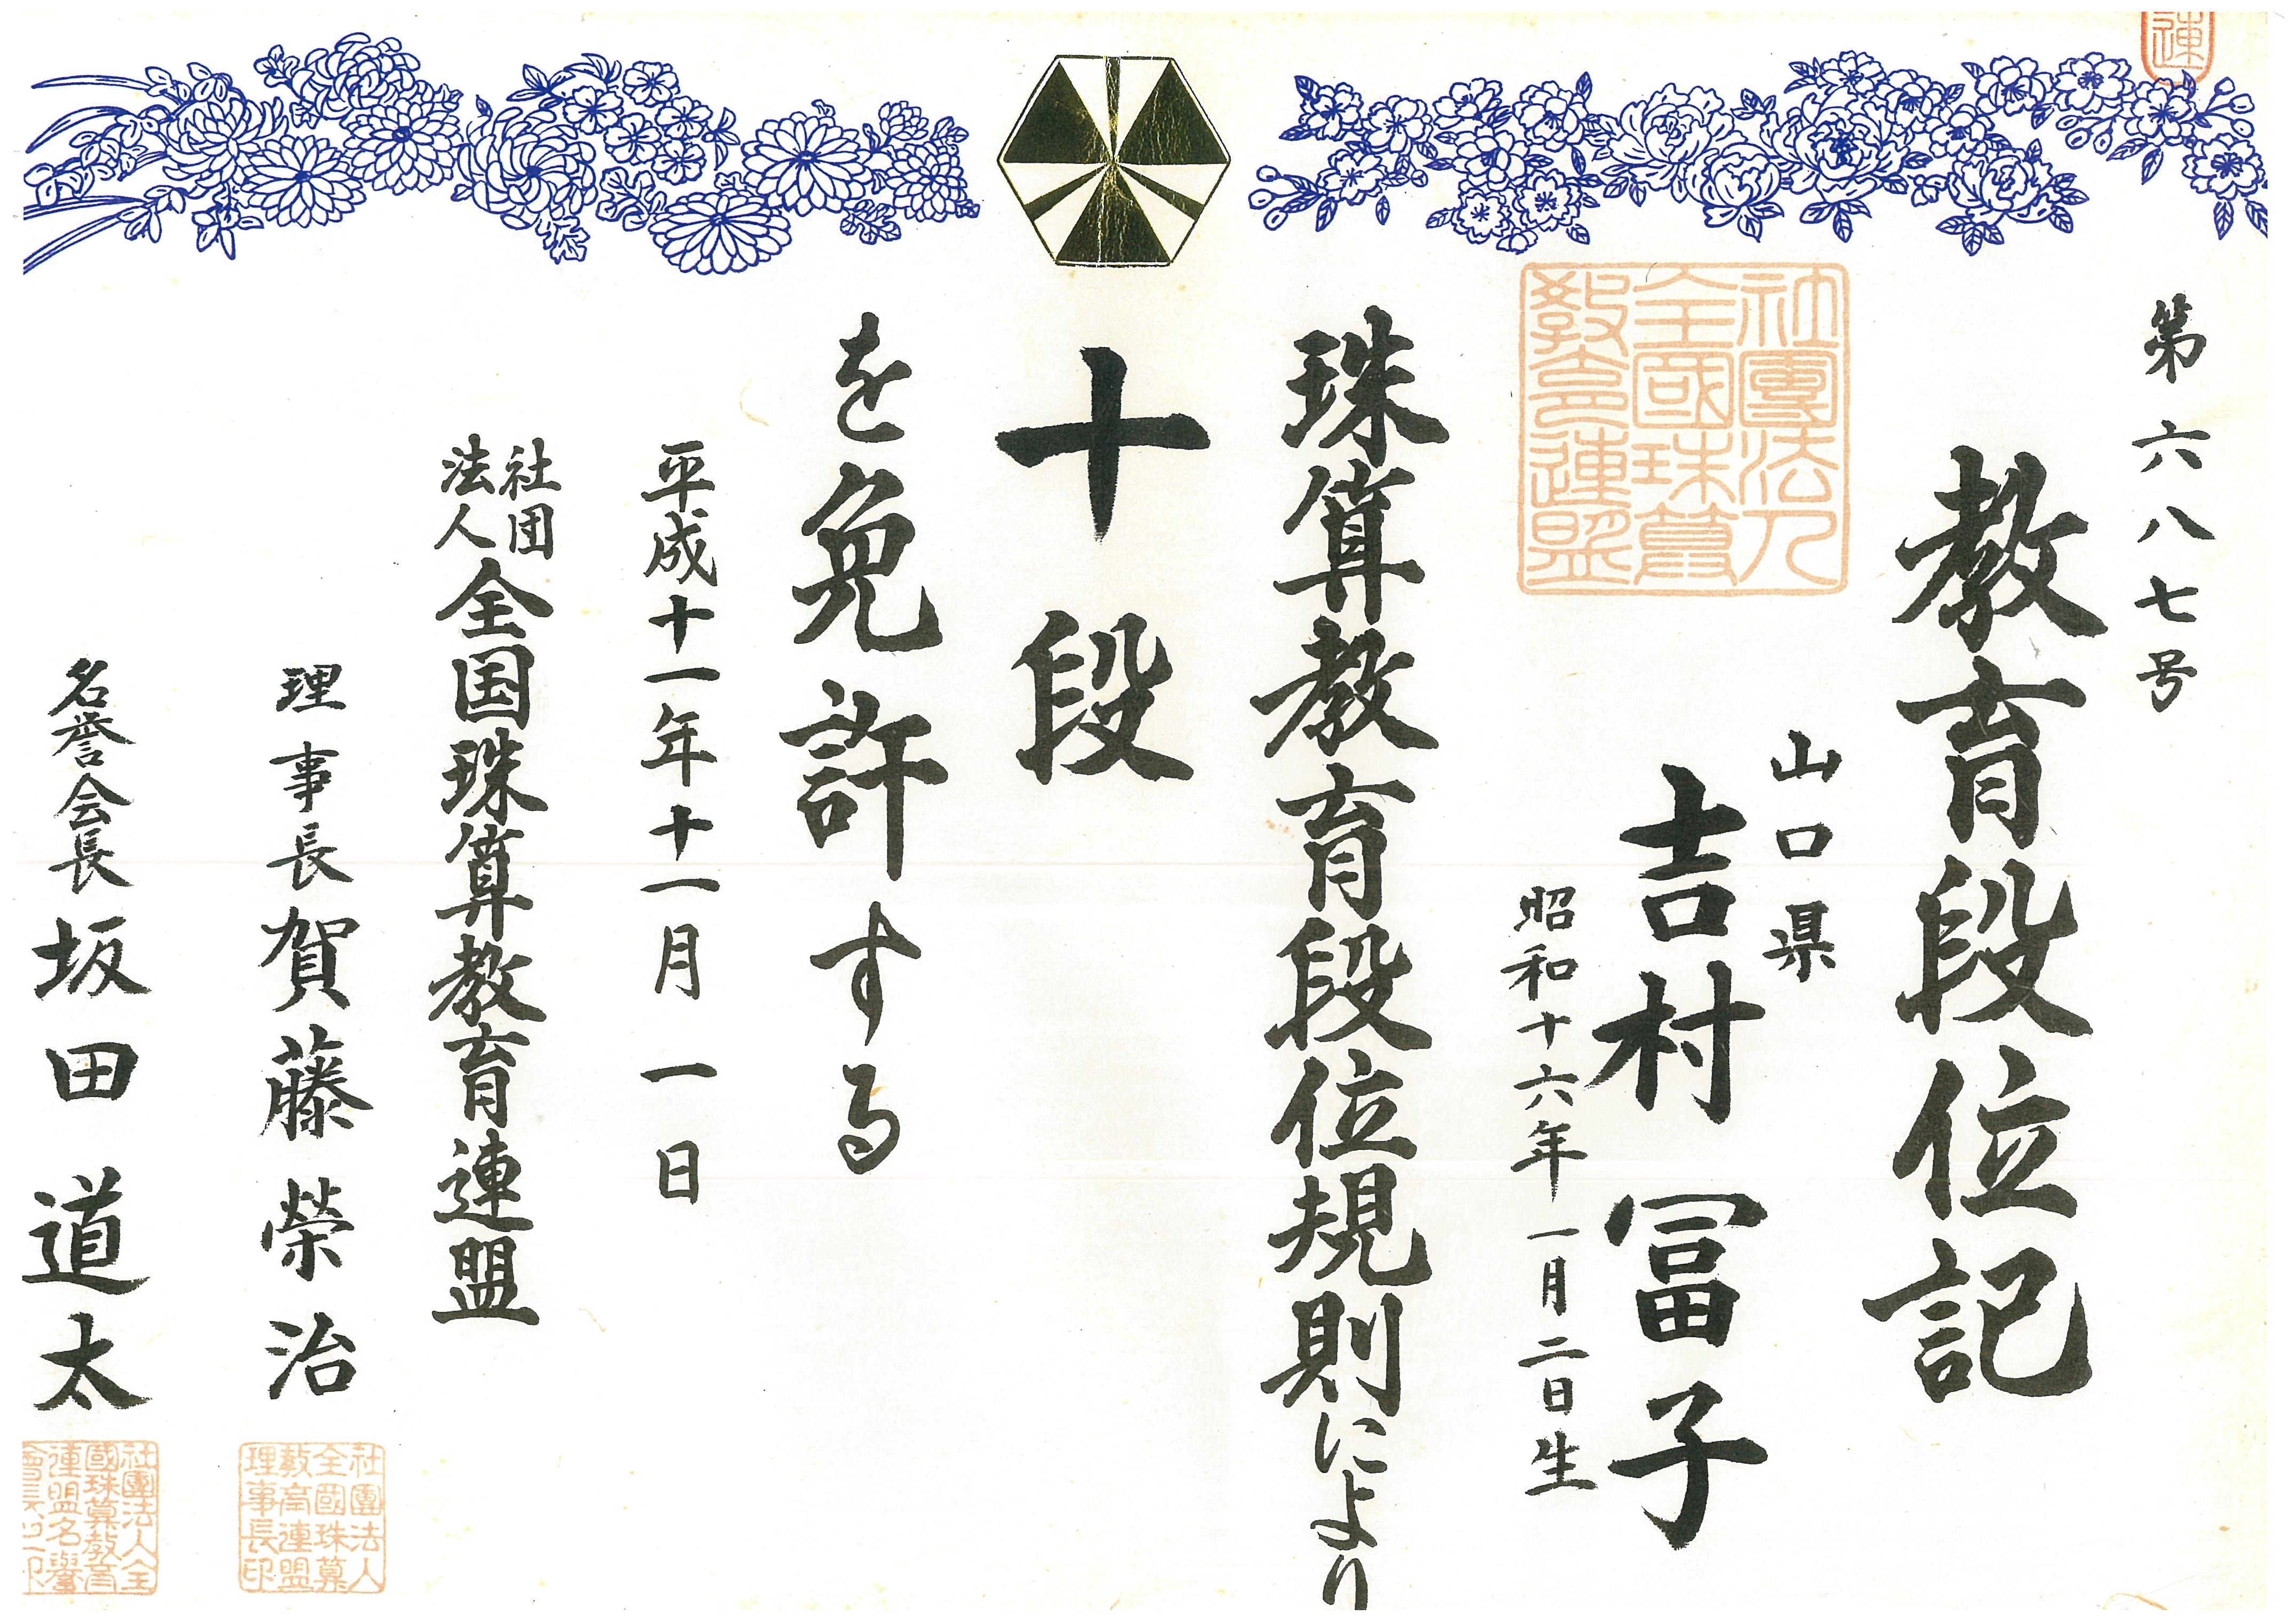 連
第六八七号
教育段位記
山口県
吉村冨子
昭和十六年一月二日生
社團法人
全國珠算
教育連盟
珠算教育段位規則により
十段
を免許する
平成十一年十一月一日
社団
法人
全国珠算教育連盟
理事長 賀藤榮治
社團法人
全國珠算
教育連盟
理事長印
名誉会長 坂田道太
社團法人全
國珠算教育
連盟名譽
會長之印